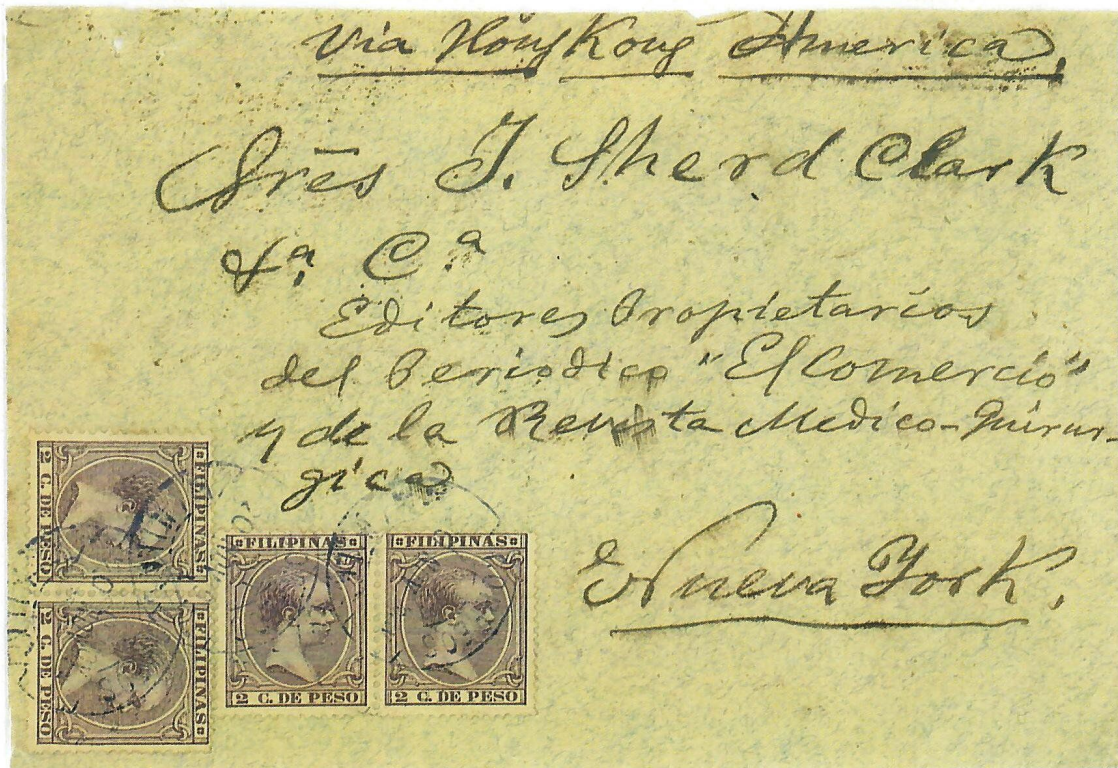 Via Hong Kong America.
Srēs J. Sherd Clark
Yª. Cª.
Editores Propietarios
del Periodico "El Comercio"
y de la Revista Medico-Quirur-
gica
Nueva York.
FILIPINAS
2 C. DE PESO
FILIPINAS
2 C. DE PESO
FILIPINAS
2 C. DE PESO
FILIPINAS
2 C. DE PESO